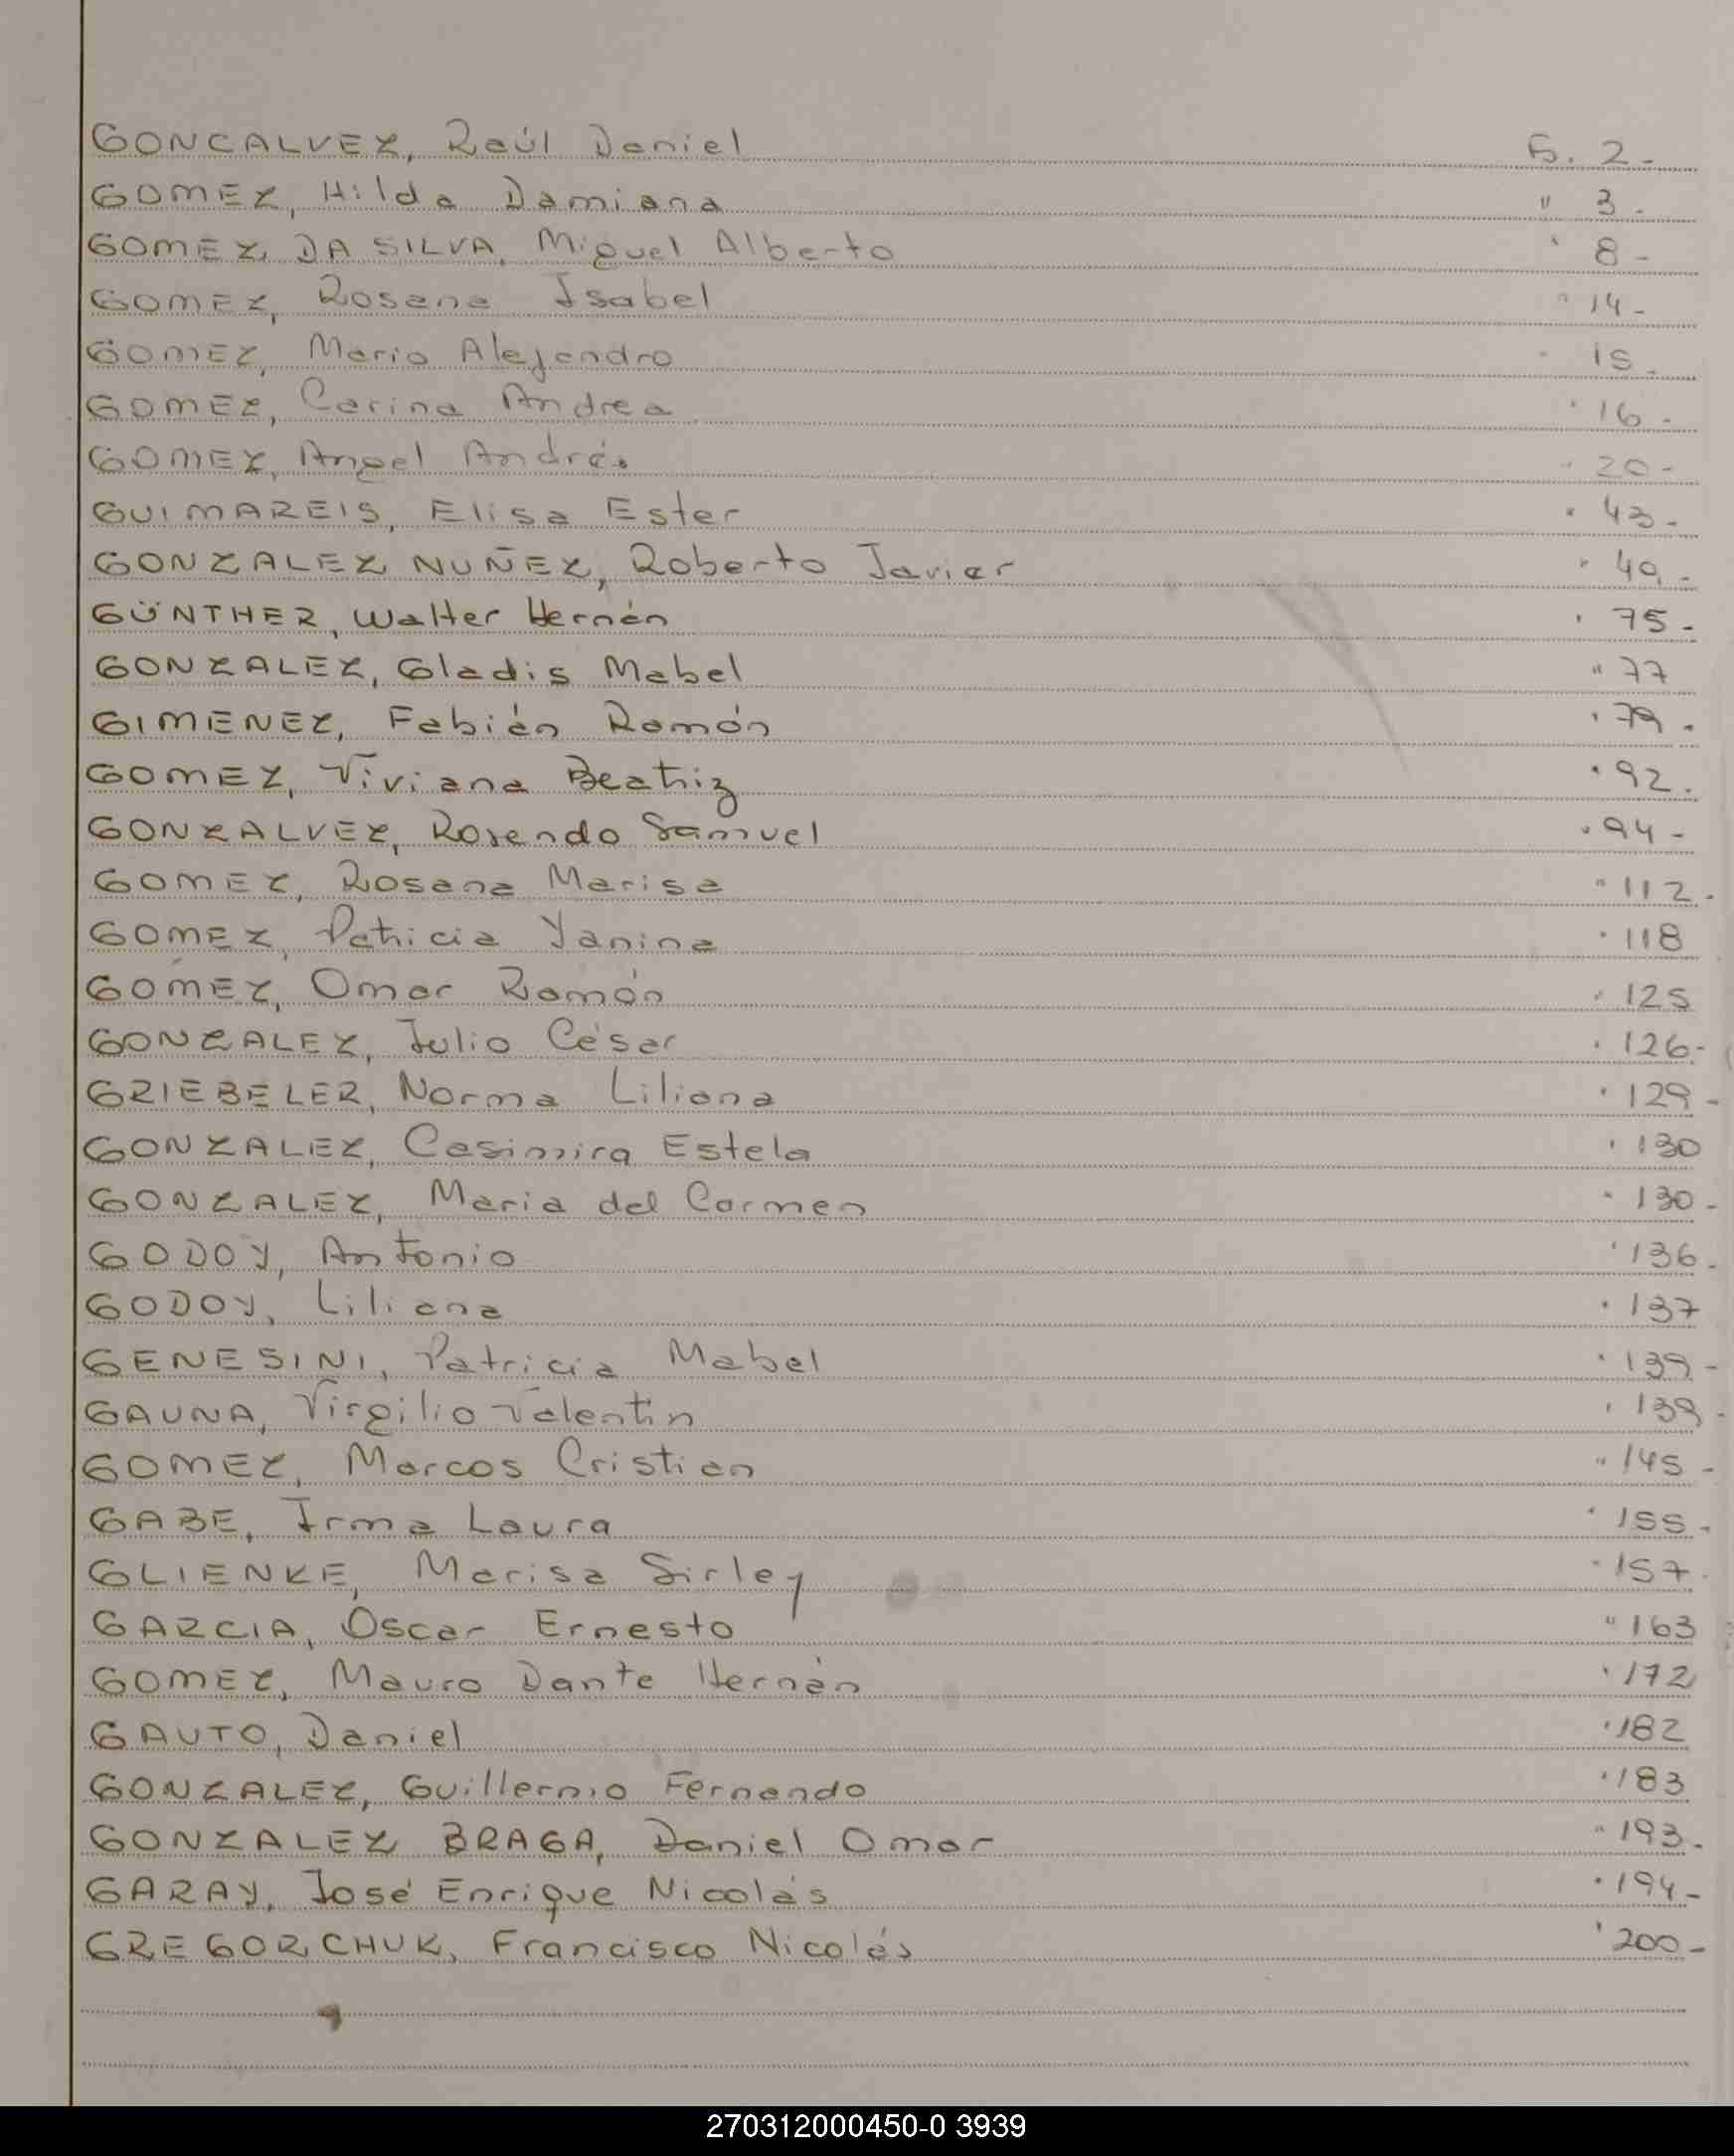 GONCALVEZ, Raúl Daniel 2-
GOMEZ, Hilda Damiana " 3-
GOMEZ, DA SILVA, Miguel Alberto " 8-
GOMEZ, Rosana Isabel " 14-
GOMEZ, Mario Alejandro " 15-
GOMEZ, Carina Andrea " 16-
GOMEZ, Angel Andrés " 20-
GUIMAREIS, Elisa Ester " 43-
GONZALEZ NUÑEZ, Roberto Javier " 49-
GÜNTHER, Walter Hernán " 75-
GONZALEZ, Gladis Mabel " 77
GIMENEZ, Fabián Ramón " 79-
GOMEZ, Viviana Beatriz " 92.
GONZALVEZ, Rosendo Samuel " 94-
GOMEZ, Rosana Marisa " 112-
GOMEZ, Patricia Yanina " 118
GOMEZ, Omar Ramón " 125
GONZALEZ, Julio César " 126-
GRIEBELER, Norma Liliana " 129-
GONZALEZ, Casimira Estela " 130
GONZALEZ, Maria del Carmen " 130-
GODOY, Antonio " 136-
GODOY, Liliana " 137
GENESINI, Patricia Mabel " 139-
GAUNA, Virgilio Valentin " 139-
GOMEZ, Marcos Cristian " 145-
GABE, Irma Laura " 155-
GLIENKE, Marisa Sirley " 157-
GARCIA, Oscar Ernesto " 163
GOMEZ, Mauro Dante Hernán " 172
GAUTO, Daniel " 182
GONZALEZ, Guillermo Fernando " 183
GONZALEZ BRAGA, Daniel Omar " 193-
GARAY, José Enrique Nicolás " 194-
GREGORCHUK, Francisco Nicolás " 200-
270312000450-0 3939